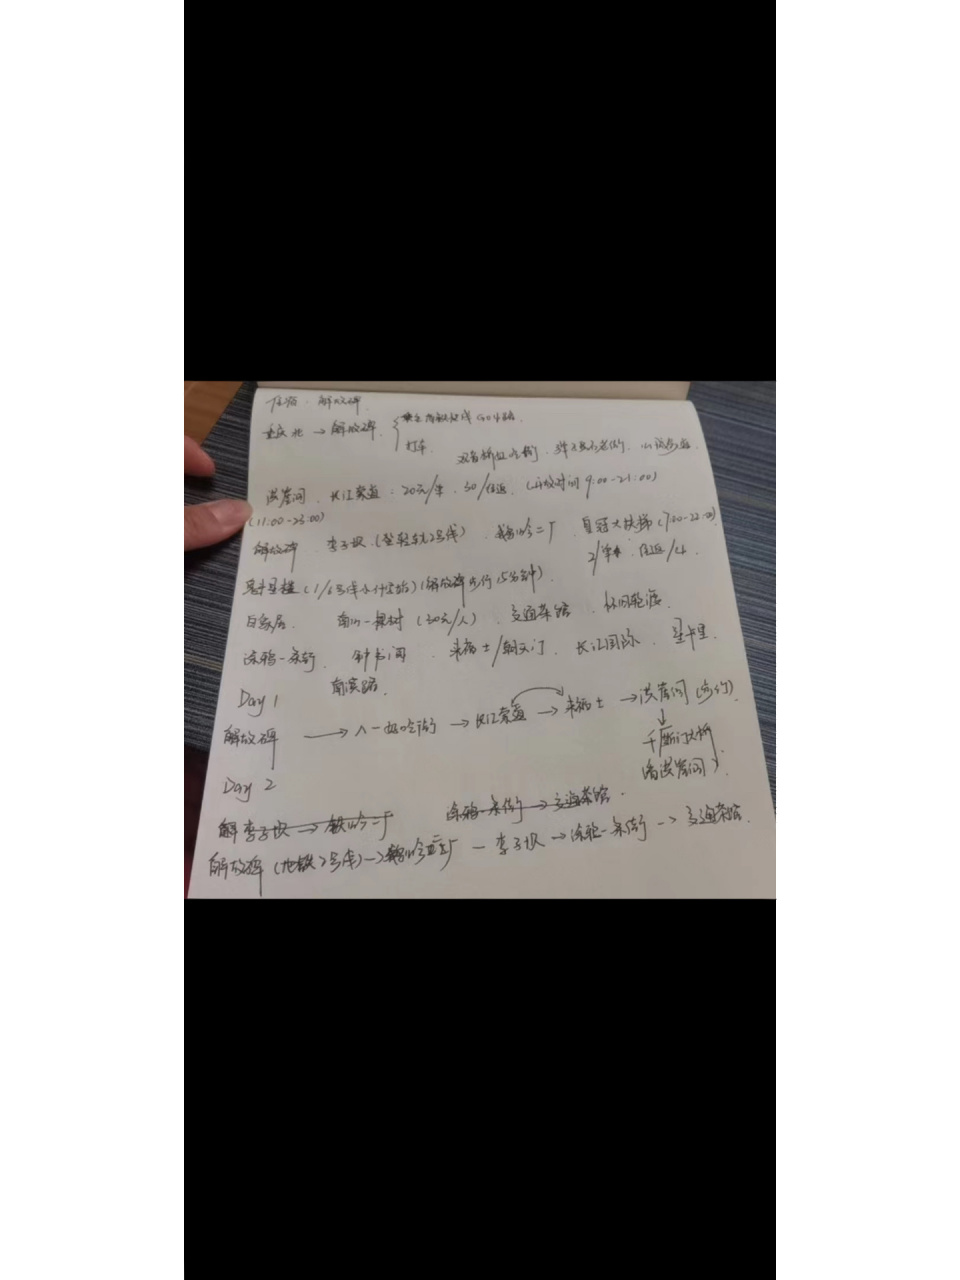 住宿：解放碑
重庆北 → 解放碑
打车
洪崖洞 、 长江索道：20元/单、30/往返 （开放时间 9:00-21:00）
(11:00-23:00)
解放碑 、 李子坝（坐轻轨2号线） 、 鹅岭二厂 、 皇冠大扶梯（7:00-22:00）
2/单 、 往返/4
魁星楼（1/6号线小什字站）（解放碑步行15分钟）
白象居 、 南山一棵树（30元/人） 、 交通茶馆 、
涂鸦一条街 、 钟书阁 、 来福士/朝天门 、 长江国际 、 星卡里
南滨路
Day 1
解放碑 → 八一好吃街 → 长江索道 → 来福士 → 洪崖洞（步行）
↓
千厮门大桥
（看洪崖洞）
Day 2
解 李子坝 → 鹅岭二厂 涂鸦一条街 → 交通茶馆
解放碑（地铁2号线）→ 鹅岭二厂 — 李子坝 → 涂鸦一条街 -> 交通茶馆